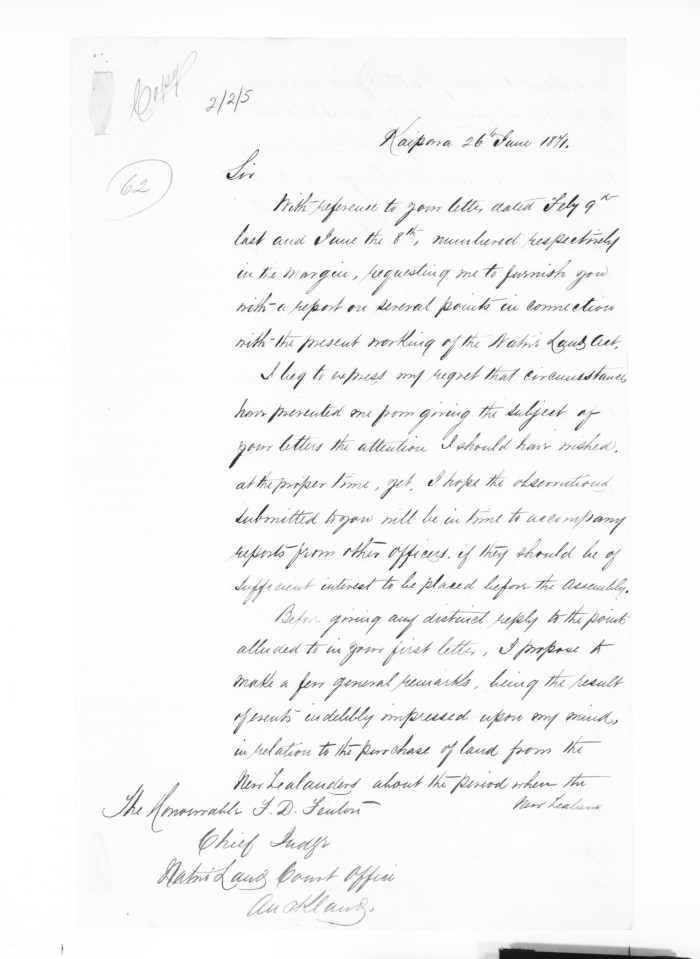 Copy
2/2/5
62
Kaipara 26th June 1871.
Sir
With reference to your letter dated Feby 9th
last and June the 8th, numbered respectively
in the margin, requesting me to furnish you
with a report on several points in connection
with the present working of the Native Lands Act.
I beg to express my regret that circumstances
have prevented me from giving the subject of
your letters the attention I should have wished,
at the proper time, yet, I hope the observations
submitted to you will be in time to accompany
reports from other officers, if they should be of
sufficient interest to be placed before the Assembly.
Before giving any distinct reply to the points
alluded to in your first letter, I propose to
make a few general remarks, being the result
of events indelibly impressed upon my mind,
in relation to the purchase of land from the
New Zealanders about the period when the
New Zealand
The Honourable F. D. Fenton
Chief Judge
Native Lands Court Office
Auckland.